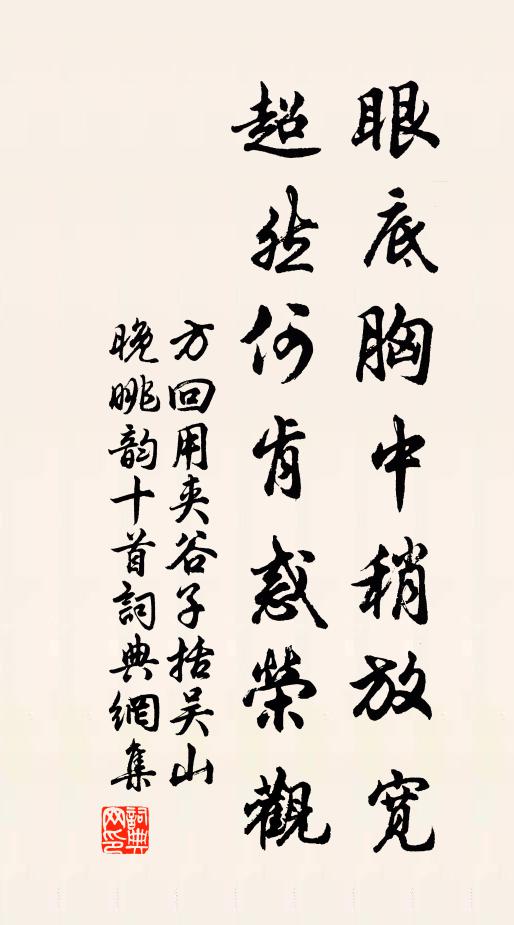 眼底胸中稍放寬
超然何肯惑榮觀
方回用夾谷子括吴山
晚眺韵十首詞典網集
詞典
网印